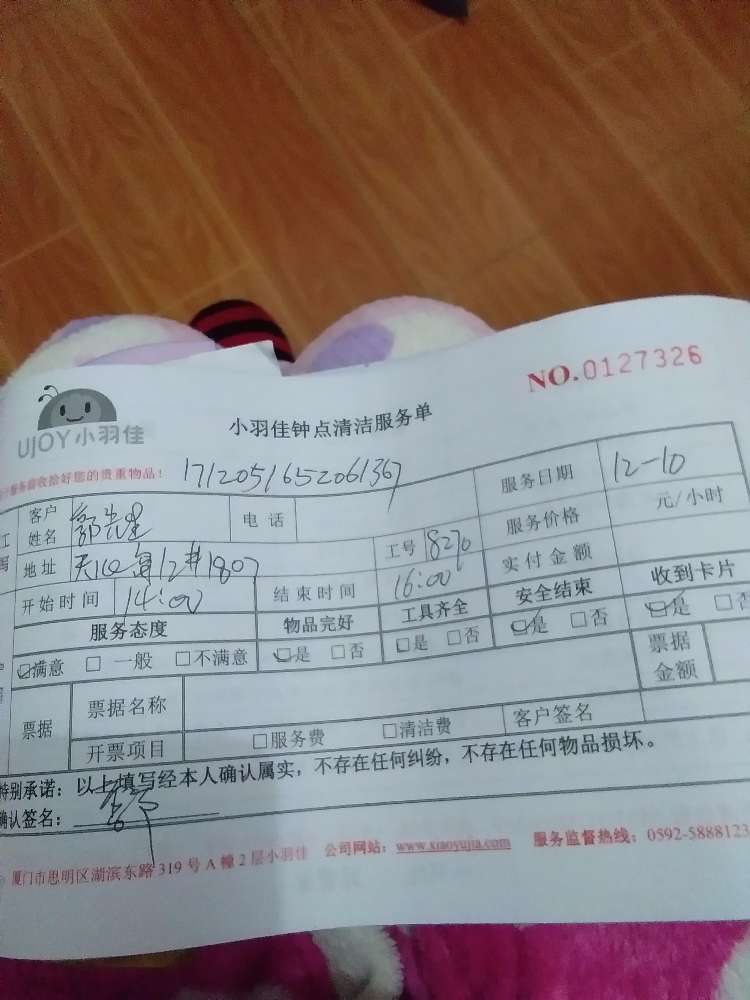 NO.0127326
UJOY小羽佳
小羽佳钟点清洁服务单
服务前收拾好您的贵重物品！ 1712051652061367 服务日期 12-10
客户姓名 郭先生 电话 服务价格 元/小时
地址 1807 工号 18270 实付金额
开始时间 14:00 结束时间 16:00 安全结束 收到卡片
服务态度 物品完好 工具齐全 □是 □否 □是 □否
□满意 □ 一般 □不满意 □是 □否 □是 □否 票据金额
票据 票据名称
开票项目 □服务费 □清洁费 客户签名
特别承诺：以上填写经本人确认属实，不存在任何纠纷，不存在任何物品损坏。
确认签名：
厦门市思明区湖滨东路319号A幢2层小羽佳 公司网站：www.xiaoyujia.com 服务监督热线：0592-5888123